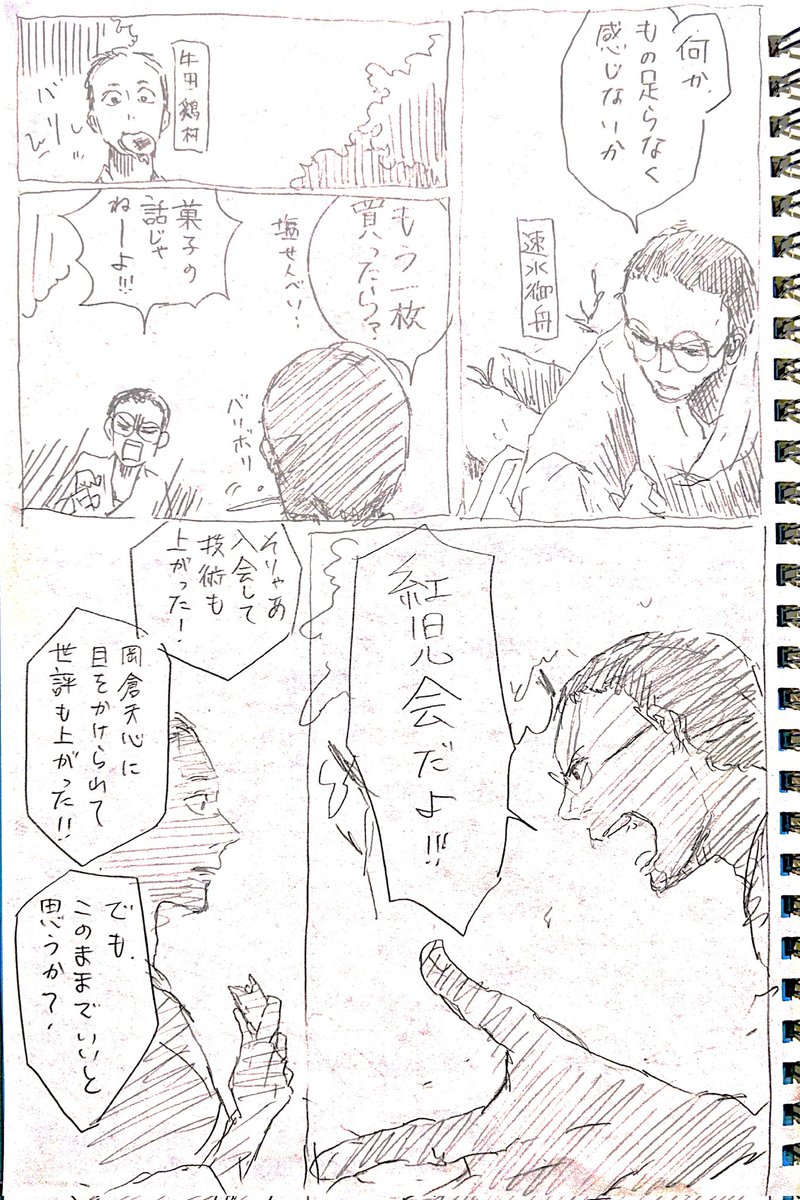 何か、
もの足らなく
感じないか
速水御舟
牛田鶏村
バリッ
もう一枚
買ったら?
塩せんべい…
菓子の
話じゃ
ねーよ!!!
バリボリ
紅児会だよ!!!
そりゃあ
入会して
技術も
上がった!
岡倉天心に
目をかけられて
世評も上がった!!
でも、
このままでいいと
思うか?